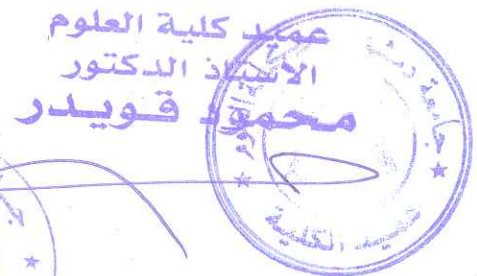 عميد كلية العلوم
الاستاذ الدكتور
محمود قويدر
جامعة دمشق
عميد الكلية